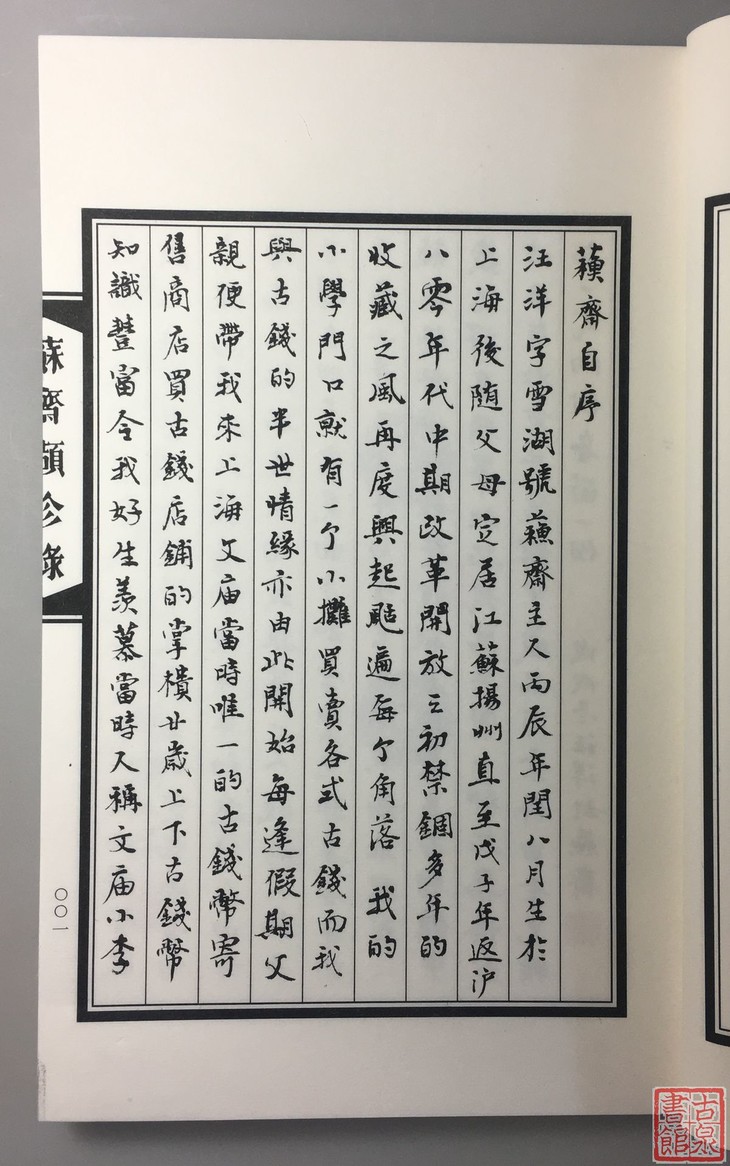 蘓齋自序
汪洋字雪湖號蘓齋主人丙辰年閏八月生於
上海後随父母定居江蘇揚州直至戊子年返沪
八零年代中期改革開放之初禁錮多年的
收藏之風再度興起颳遍每个角落我的
小學門口就有一个小攤買賣各式古錢而我
與古錢的半世情緣亦由此開始每逢假期父
親便帶我來上海文庙當時唯一的古錢幣寄
售商店買古錢店鋪的掌櫃廿歲上下古錢幣
知識豐富令我好生羡慕當時人稱文庙小李
蘇齋頡珍錄
〇〇一
古泉
書館